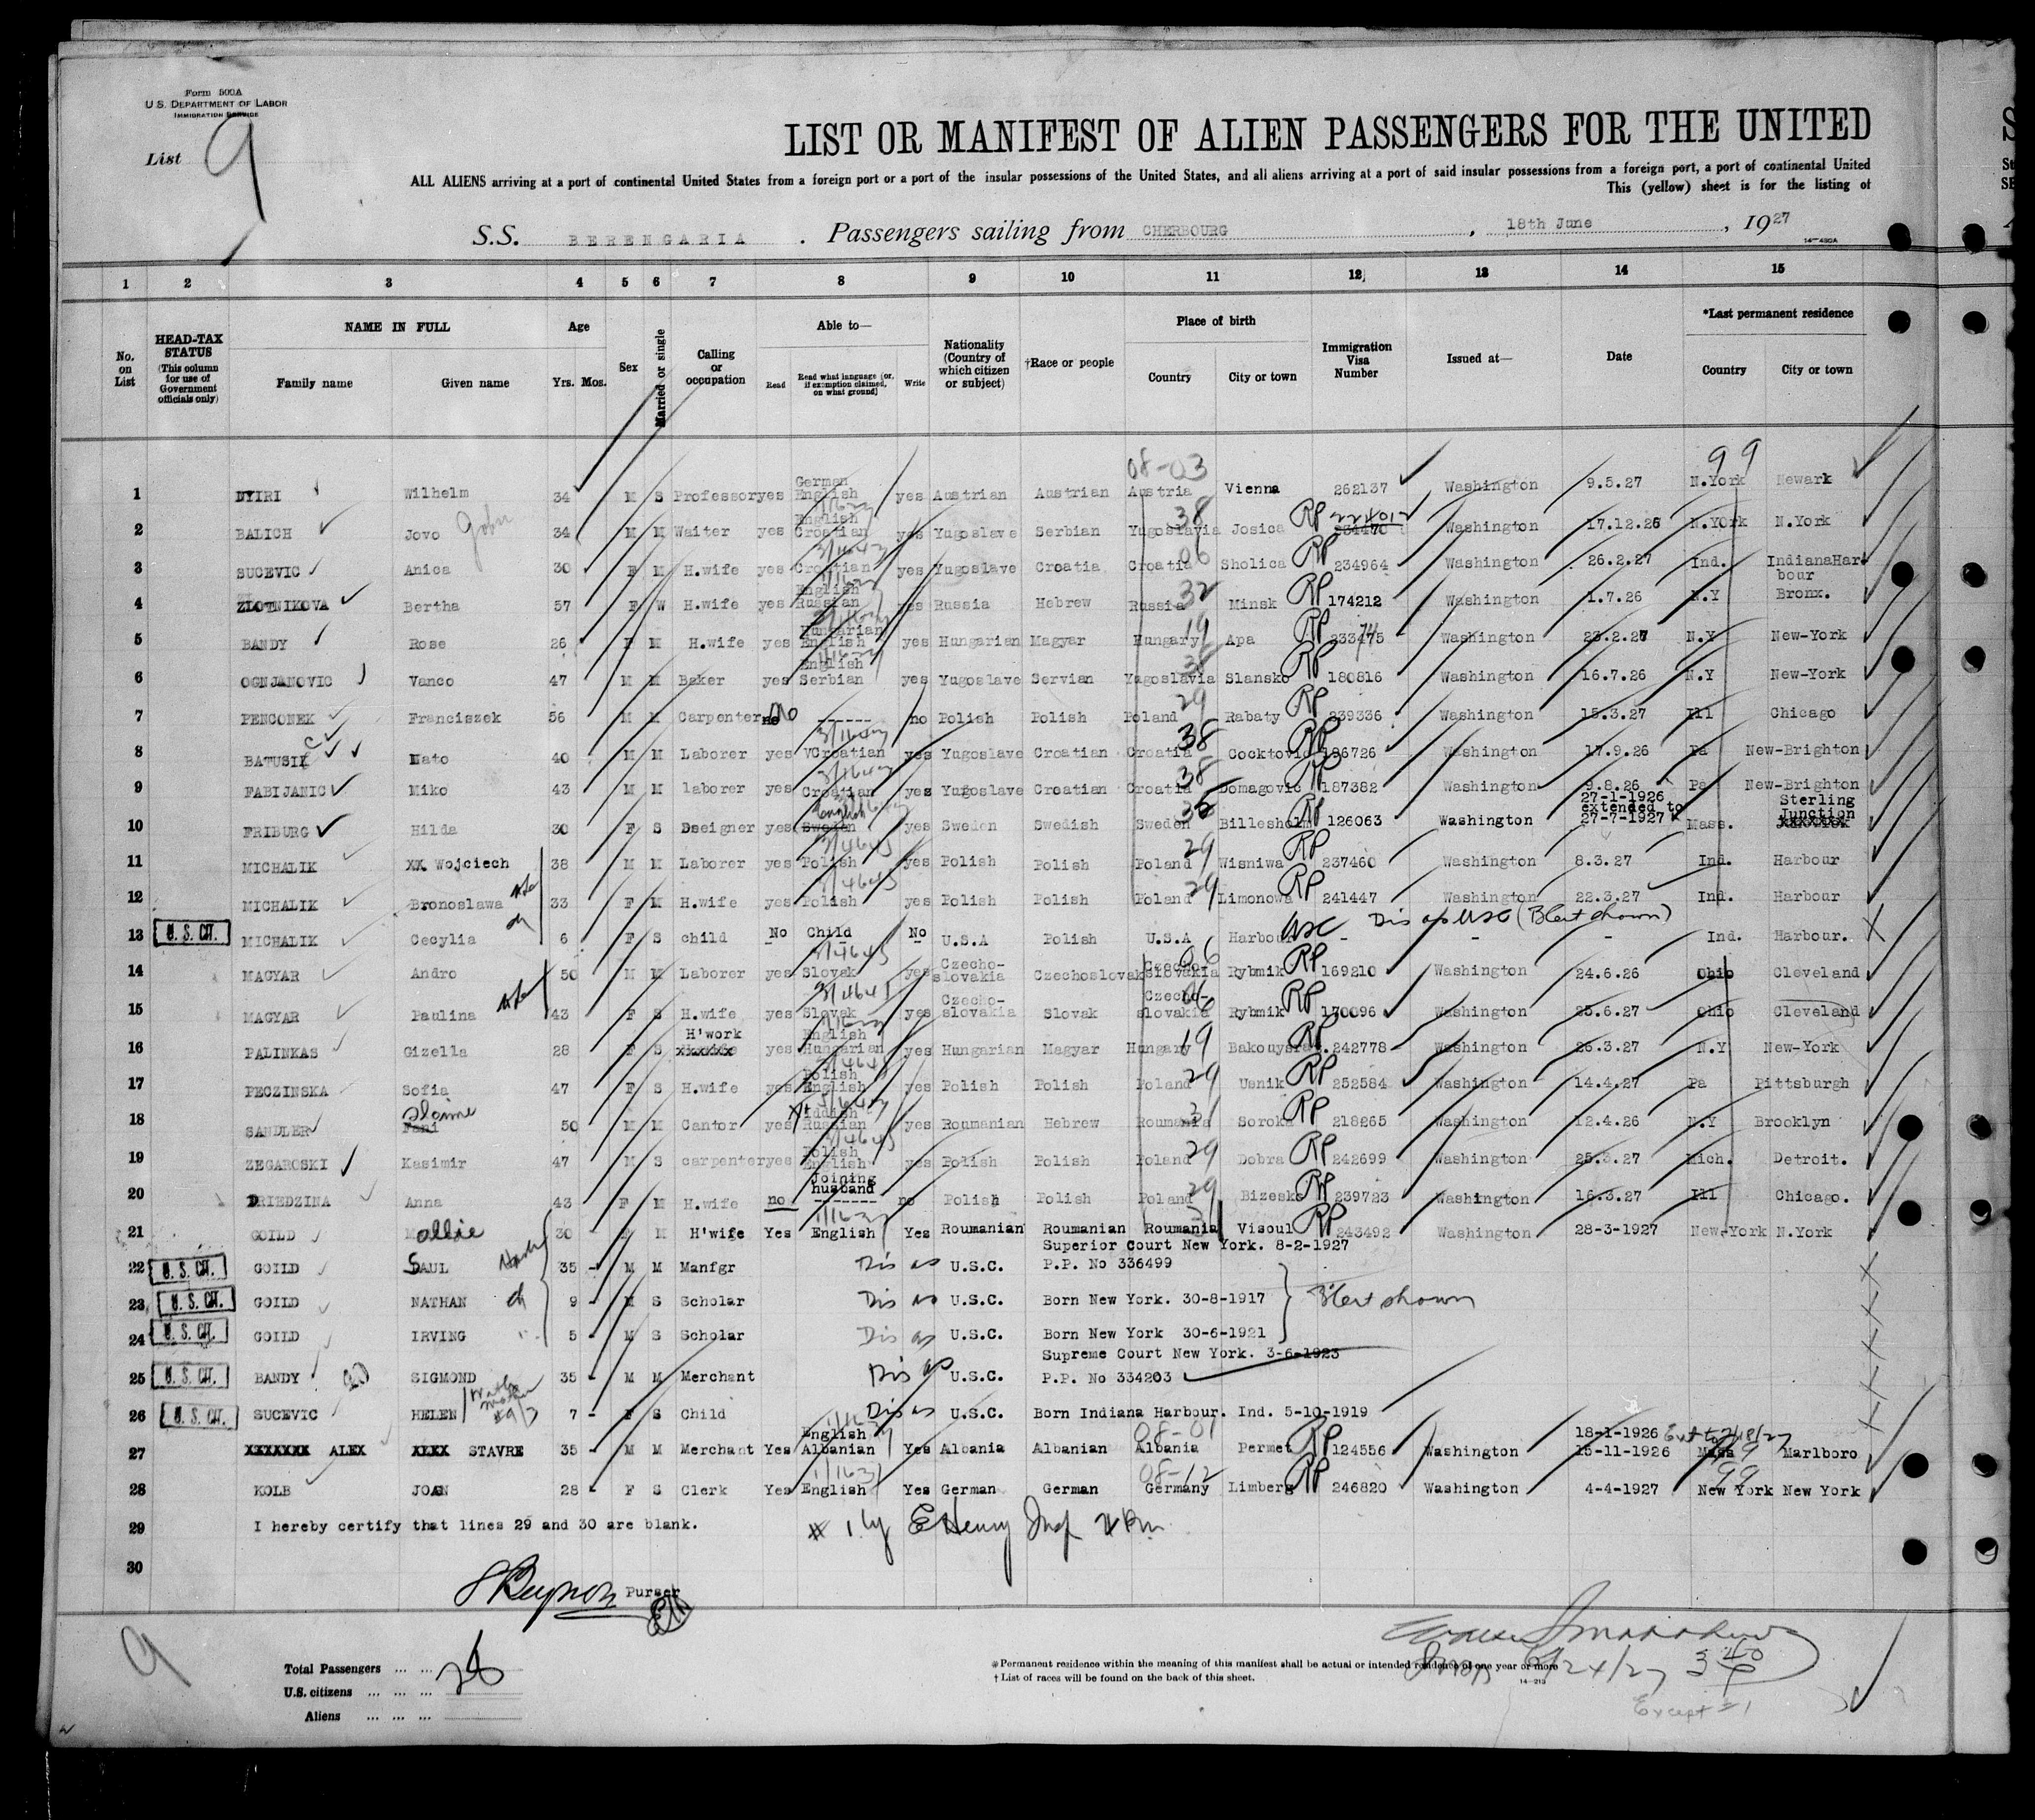 Form 500A
U.S. DEPARTMENT OF LABOR
IMMIGRATION SERVICE
List 9
LIST OR MANIFEST OF ALIEN PASSENGERS FOR THE UNITED
ALL ALIENS arriving at a port of continental United States from a foreign port or a port of the insular possessions of the United States, and all aliens arriving at a port of said insular possessions from a foreign port, a port of continental United
This (yellow) sheet is for the listing of
S.S. BERENGARIA . Passengers sailing from CHERBOURG , 18th June , 1927
14-430A
1 2 3 4 5 6 7 8 9 10 11 12 13 14 15
No. on List
HEAD-TAX STATUS (This column for use of Government officials only)
NAME IN FULL Family name Given name
Age Yrs. Mos.
Sex
Married or single
Calling or occupation
Able to— Read Read what language [or, if exemption claimed, on what ground] Write
Nationality (Country of which citizen or subject)
†Race or people
Place of birth Country City or town
Immigration Visa Number
Issued at—
Date
*Last permanent residence Country City or town
08-03 99
1 NYIRI Wilhelm 34 M S Professor yes German English yes Austrian Austrian Austria Vienna 262137 Washington 9.5.27 N.York Newark
2 BALICH Jovo John 34 M M Waiter yes English Croatian yes Yugoslave Serbian Yugoslavia 38 Josica RP 224012 234470 Washington 17.12.26 N.York N.York
3 SUCEVIC Anica 30 F M H.wife yes Croatian yes Yugoslave Croatia Croatia 06 Sholica RP 234964 Washington 26.2.27 Ind. IndianaHarbour
4 ZLOTNIKOVA Bertha 57 F W H.wife yes English Russian yes Russia Hebrew Russia 32 Minsk RP 174212 Washington 1.7.26 N.Y Bronx.
5 BANDY Rose 26 F M H.wife yes Hungarian English yes Hungarian Magyar Hungary 19 Apa RP 233475 Washington 23.2.27 N.Y New-York
6 OGNJANOVIC Vanco 47 M M Baker yes English Serbian yes Yugoslave Servian Yugoslavia 38 Slansko RP 180816 Washington 16.7.26 N.Y New-York
7 PENCONEK Franciszek 56 M M Carpenter no No ------ no Polish Polish Poland 29 Rabaty RP 239336 Washington 15.3.27 Ill Chicago
8 BATUSIK c Mato 40 M M Laborer yes Croatian yes Yugoslave Croatian Croatia 38 Cocktovic RP 186726 Washington 17.9.26 Pa New-Brighton
9 FABIJANIC Miko 43 M M laborer yes Croatian yes Yugoslave Croatian Croatia 38 Domagovic RP 187382 Washington 9.8.26 Pa New-Brighton
10 FRIBURG Hilda 30 F S Dseigner yes English Sweden yes Sweden Swedish Sweden Billesholm RP 126063 Washington 27-1-1926 extended to 27-7-1927 Mass. Sterling Junction
11 MICHALIK XX Wojciech 38 M M Laborer yes Polish yes Polish Polish Poland 29 Wisniwa RP 237460 Washington 8.3.27 Ind. Harbour
12 MICHALIK Bronoslawa 33 F M H.wife yes Polish yes Polish Polish Poland 29 Limonowa RP 241447 Washington 22.3.27 Ind. Harbour
13 U.S. CIT. MICHALIK Cecylia ch 6 F S child No Child No U.S.A Polish U.S.A Harbour USC - Dis as USC (B Cert shown) - - Ind. Harbour.
14 MAGYAR Andro 50 M M Laborer yes Slovak yes Czecho-slovakia Czechoslovak Czecho-slovakia 06 Rybmik RP 169210 Washington 24.6.26 Ohio Cleveland
15 MAGYAR Paulina 43 F S H.wife yes Slovak yes Czecho-slovakia Slovak Czecho-slovakia 06 Rybmik RP 170096 Washington 25.6.27 Ohio Cleveland
16 PALINKAS Gizella 28 F S H'work xxxxxx yes English Hungarian yes Hungarian Magyar Hungary 19 RP 242778 Washington 26.3.27 N.Y New-York
17 PECZINSKA Sofia 47 F S H.wife yes Polish English yes Polish Polish Poland 29 Usnik RP 252584 Washington 14.4.27 Pa Pittsburgh
18 SANDLER Fani 50 M M Cantor yes Yiddish Russian yes Roumanian Hebrew Roumania 31 Soroka RP 218265 Washington 12.4.26 N.Y Brooklyn
19 ZEGAROSKI Kasimir 47 M S carpenter yes Polish English yes Polish Polish Poland 29 Dobra RP 242699 Washington 25.3.27 Mich. Detroit.
20 DRIEDZINA Anna 43 F M H.wife no Joining husband ------- no Polish Polish Poland 29 Bizeska RP 239723 Washington 16.3.27 Ill Chicago.
21 GOILD Mallie 30 F M H'wife Yes English Yes Roumanian Roumanian Roumania 31 Visoul RP 243492 Washington 28-3-1927 New-York N.York
Superior Court New York. 8-2-1927
22 U.S. CIT. GOILD SAUL 35 M M Manfgr Dis as U.S.C. P.P. No 336499
23 U.S. CIT. GOILD NATHAN ch 9 M S Scholar Dis as U.S.C. Born New York. 30-8-1917 B Cert shown
24 U.S. CIT. GOILD IRVING 5 M S Scholar Dis as U.S.C. Born New York 30-6-1921
Supreme Court New York. 3-6-1923
25 U.S. CIT. BANDY SIGMOND 35 M M Merchant Dis as U.S.C. P.P. No 334203
26 U.S. CIT. SUCEVIC HELEN with mother #9/3 7 F S Child Dis as U.S.C. Born Indiana Harbour. Ind. 5-10-1919
27 XXXXXXX ALEX XXXX STAVRE 35 M M Merchant Yes English Albanian Yes Albania Albanian 08-01 Albania Permet RP 124556 Washington 18-1-1926 15-11-1926 Mass 99 Marlboro
28 KOLB JOAN 28 F S Clerk Yes English Yes German German 08-12 Germany Limberg RP 246820 Washington 4-4-1927 99 New York New York
29 I hereby certify that lines 29 and 30 are blank.
30
Purser
9
Total Passengers ... ... 28
U.S. citizens ... ... ...
Aliens ... ... ...
* Permanent residence within the meaning of this manifest shall be actual or intended residence of one year or more
† List of races will be found on the back of this sheet.
14-213
6/24/27
Except #1